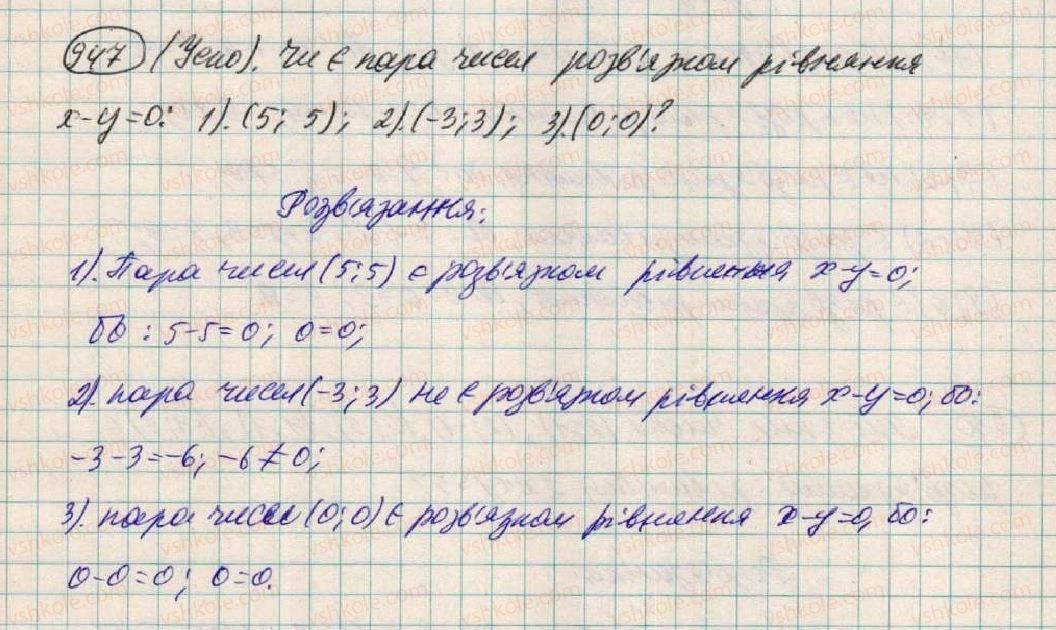 947 (Усно). Чи є пара чисел розв'язком рівняння
x-y=0: 1). (5; 5); 2). (-3;3); 3). (0;0)?
Розв'язання:
1). Пара чисел (5;5) є розв'язком рівняння x-y=0;
бо: 5-5=0; 0=0;
2). пара чисел (-3;3) не є розв'язком рівняння x-y=0; бо:
-3-3=-6; -6≠0;
3). пара чисел (0;0) є розв'язком рівняння x-y=0, бо:
0-0=0; 0=0.